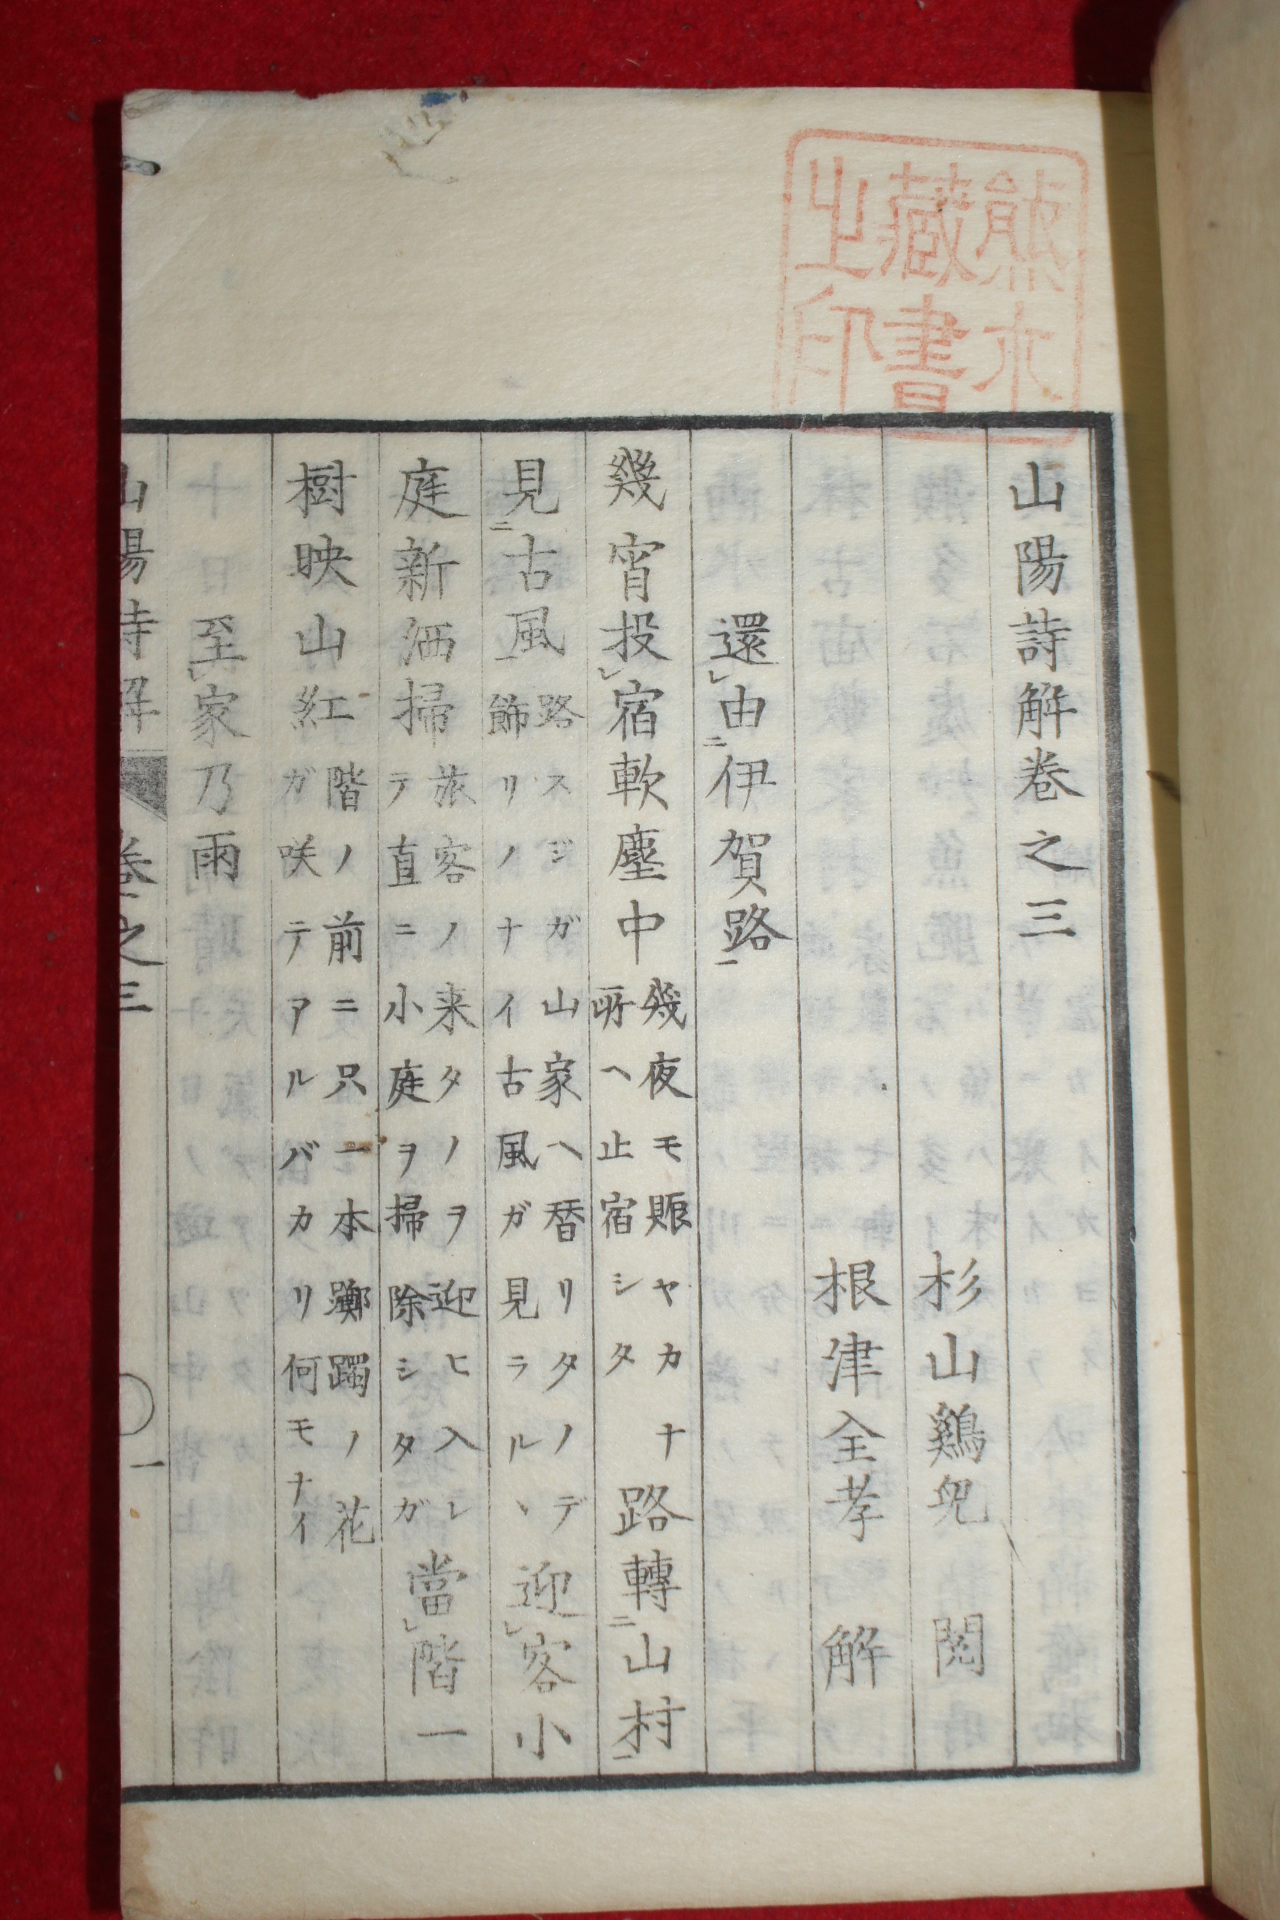 熊木
藏書
之印
山陽詩解卷之三
杉山鷄兒 閱
根津全孝 解
還レ由二伊賀路一
幾宵投レ宿軟塵中 幾夜モ賑ヤカナ
所ヘ止宿シタ 路轉二山村一
見二古風一 路スジガ山家ヘ替リタノデ
飾リノナイ古風ガ見ラルヽ 迎レ客小
庭新洒掃 旅客ノ来タノヲ迎ヒ入レ
テ直ニ小庭ヲ掃除シタガ 當レ階一
樹映山紅 階ノ前ニ只一本躑躅ノ花
ガ咲テアルバカリ何モナイ
至レ家乃雨
山陽詩解 卷之三 一